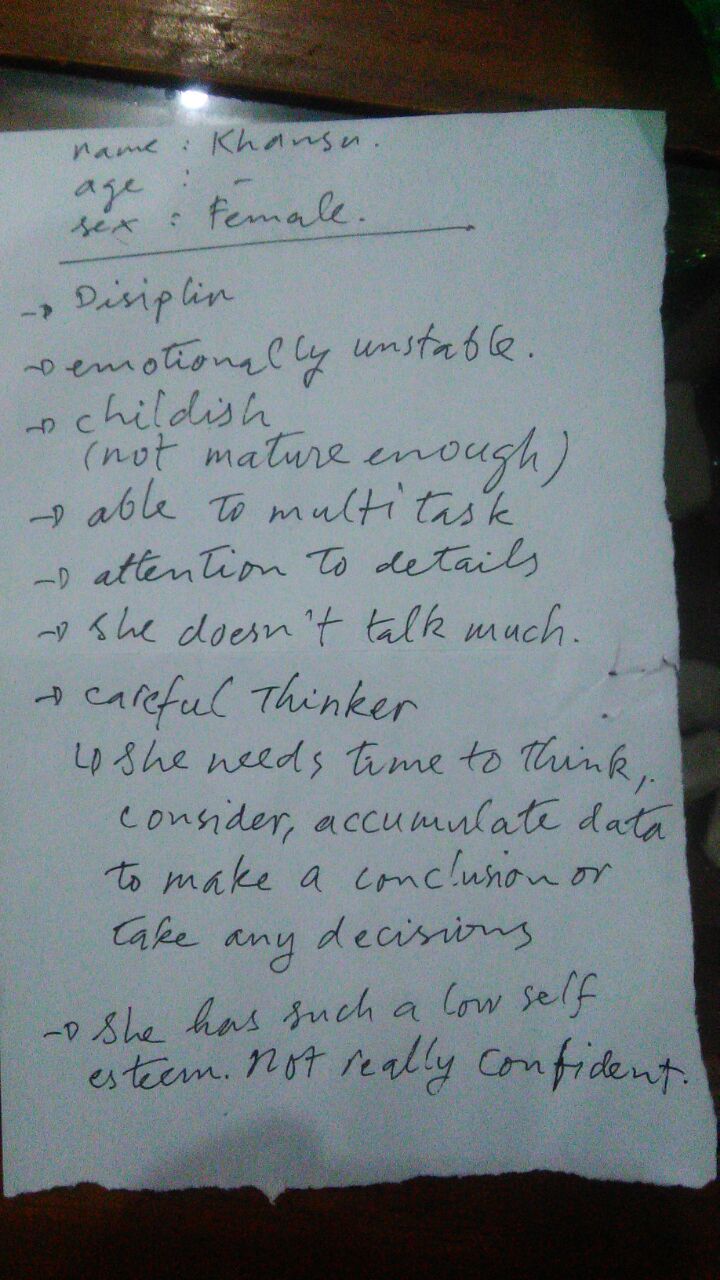 name : Khansa.
age : -
sex : Female.
→ Disiplin
→ emotionally unstable.
→ childish
(not mature enough)
→ able to multi task
→ attention to details
→ she doesn't talk much.
→ careful Thinker
↳ she needs time to think,
consider, accumulate data
to make a conclusion or
take any decisions
→ she has such a low self
esteem. not really confident.